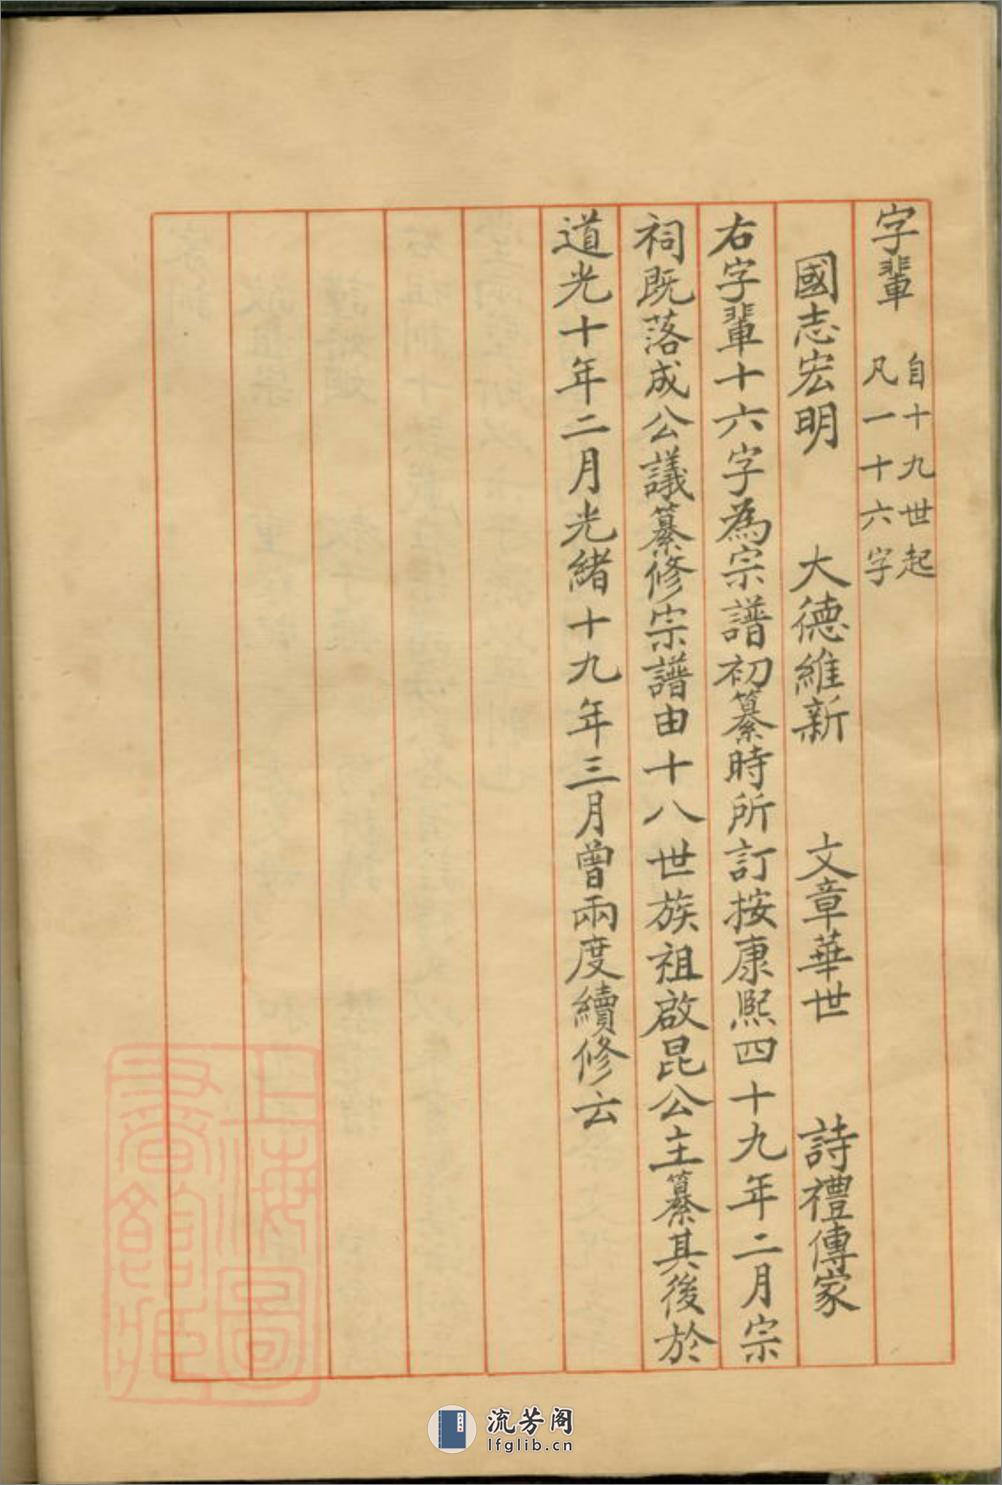 字輩 自十九世起
凡一十六字
國志宏明 大德維新 文章華世 詩禮傳家
右字輩十六字為宗譜初纂時所訂按康熙四十九年二月宗
祠既落成公議纂修宗譜由十八世族祖啟昆公主纂其後於
道光十年二月光緒十九年三月曾兩度續修云
上海圖
書館藏
流芳阁
lfglib.cn